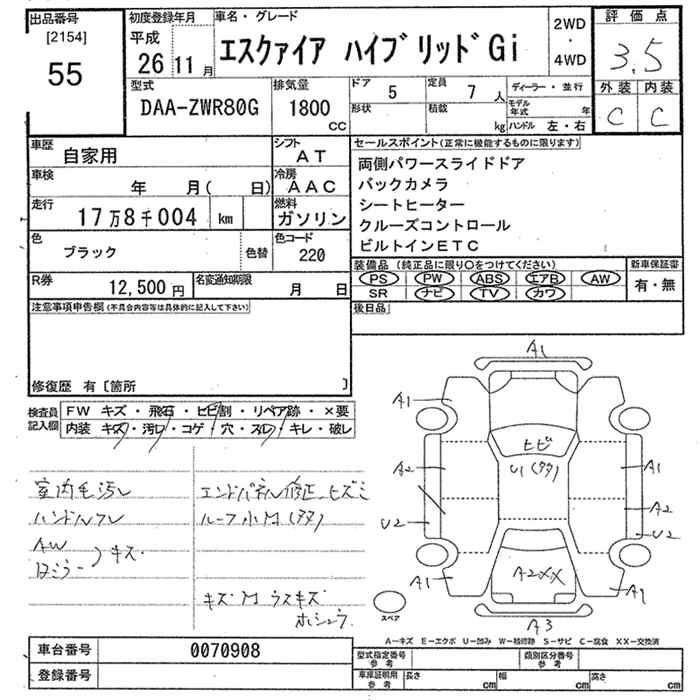 出品番号
[2154]
55
初度登録年月
平成
26年11月
車名・グレード
エスクァイア ハイブリッドGi
2WD
・
4WD
評価点
3.5
外装 内装
C C
型式
DAA-ZWR80G
排気量
1800
CC
ドア 5
形状
定員 7人
積載 kg
ディーラー・並行
モデル年式 年
ハンドル 左・右
車歴
自家用
シフト
AT
車検
年 月( 日)
冷房
AAC
走行
17万8千004 km
燃料
ガソリン
色
ブラック
色替
色コード
220
R券
12,500円
名変通知期限
月 日
セールスポイント(正常に機能するものに限ります)
両側パワースライドドア
バックカメラ
シートヒーター
クルーズコントロール
ビルトインETC
装備品(純正品に限り○をつけてください)
PS PW ABS エアB AW
SR ナビ TV カワ
新車保証書
有・無
後日品
注意事項申告欄(不具合内容等は具体的に記入して下さい)
修復歴 有[箇所 ]
検査員記入欄
FW キズ・飛石・ヒビ割・リペア跡・×要
内装 キズ・汚レ・コゲ・穴・スレ・キレ・破レ
室内毛汚レ
ハンドルスレ
AW
キズ
エンドパネル修正ヒズミ
ルーフ小凹(タタ)
A1
A1
ヒビ
A2
U1(タタ)
A1
A2
U2
U2
A1
A2XX
A1
スペア
A3
A−キズ E−エクボ U−凹み W−補修跡 S−サビ C−腐食 XX−交換済
車台番号
0070908
登録番号
型式指定番号
参考
類別区分番号
参考
車庫証明用
参考
長さ cm
幅 cm
高さ cm